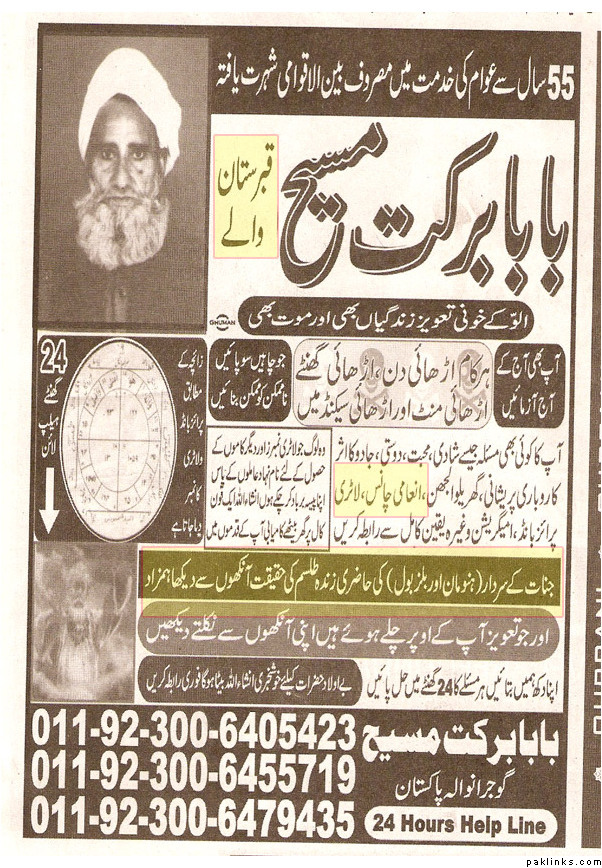 55 سال سے عوام کی خدمت میں مصروف بین الاقوامی شہرت یافتہ
بابا برکت مسیح
قبرستان
والے
الوّ کے خونی تعویز زندگیاں بھی اور موت بھی
GHUMAN
آپ بھی آج کے
آج آزمائیں
ہر کام اڑھائی دن، اڑھائی گھنٹے
اڑھائی منٹ اور اڑھائی سیکنڈ میں
جو چاہیں سو پائیں
ناممکن کو ممکن بنائیں
24
گھنٹے
ہیلپ
لائن
زائچہ کے
مطابق
پرائز بانڈ
ولاٹری
کا نمبر
دیا جاتا ہے
آپ کا کوئی بھی مسئلہ جیسے شادی، محبت، دوستی، جادو کا اثر
کاروباری پریشانی، گھریلو الجھن، انعامی چانس، لاٹری
پرائز بانڈ، امیگریشن وغیرہ یقین کامل سے رابطہ کریں
وہ لوگ جو لاٹری نمبرز اور دیگر کاموں کے
حصول کے لئے نام نہاد عاملوں کے پاس
اپنا پیسہ برباد کر چکے ہوں انشاء اللہ ایک فون
کال پر گھر بیٹھے کامیابی آپ کے قدموں میں
جنات کے سردار (ہنومان اور بلز بول) کی حاضری زندہ طلسم کی حقیقت آنکھوں سے دیکھا ہمزاد
اور جو تعویز آپ کے اوپر چلے ہوئے ہیں اپنی آنکھوں سے نکلتے دیکھیں
اپنا دکھ ہمیں بتائیں ہر مسئلے کا 24 گھنٹے میں حل پائیں
بے اولاد حضرات کیلئے خوشخبری انشاء اللہ بیٹا ہوگا فوری رابطہ کریں
011-92-300-6405423
011-92-300-6455719
011-92-300-6479435
بابا برکت مسیح
گوجرانوالہ پاکستان
24 Hours Help Line
paklinks.com